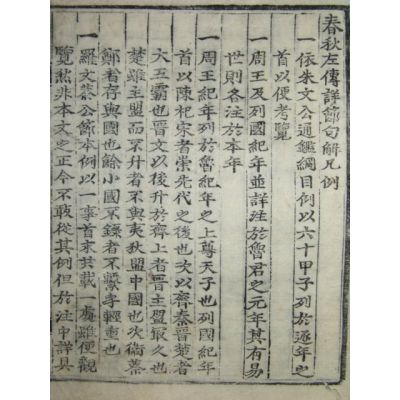 春秋左傳詳節句解凡例
一依朱文公通鑑綱目例以六十甲子列於逐年之
首以便考覽
一周王及列國紀年並詳注於魯君之元年其有易
世則各注於本年
一周王紀年列於魯紀年之上尊天子也列國紀年
首以陳杞宋者崇先代之後也次以齊秦晉楚者
大五霸也晉文以後升於齊上者晉主盟最久也
楚雖主盟而不升於晉者不與夷狄盟中國也次衛蔡
鄭者存與國也餘小國不錄者不繫乎輕重也
一羅文恭公節本例以一事首末共載一處雖便觀
覽然非本文之正今不敢從其例但於注中詳具